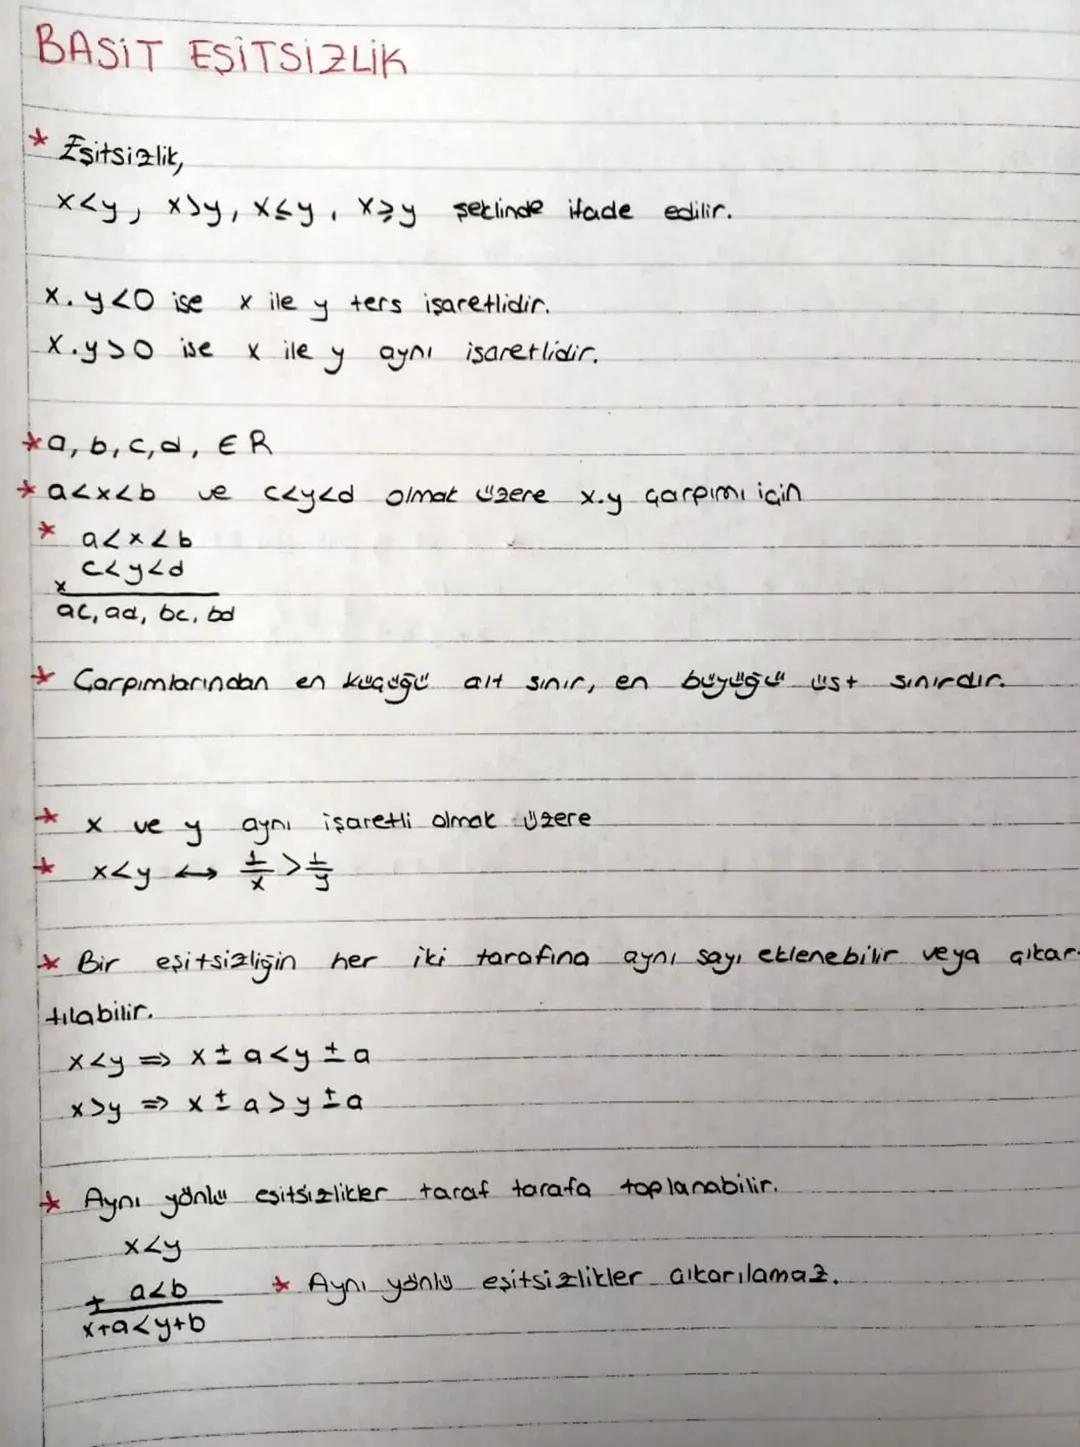 BASİT EŞİTSİZLİK
* Eşitsizlik,
x<y, x>y, x≤y, x≥y şeklinde ifade edilir.
x.y<0 ise x ile y ters işaretlidir.
x.y>0 ise x ile y aynı işaretlidir.
* a, b, c, d, ∈ R
* a<x<b ve c<y<d olmak üzere x.y çarpımı için
* a<x<b
c<y<d
x
ac, ad, bc, bd
* Çarpımlarından en küçüğü alt sınır, en büyüğü üst sınırdır.
* x ve y aynı işaretli olmak üzere
* x<y ↔ 1/x > 1/y
* Bir eşitsizliğin her iki tarafına aynı sayı eklenebilir veya çıkar-
tılabilir.
x<y ⇒ x ± a < y ± a
x>y ⇒ x ± a > y ± a
* Aynı yönlü eşitsizlikler taraf tarafa toplanabilir.
x<y
+ a<b * Aynı yönlü eşitsizlikler çıkarılamaz.
x+a<y+b